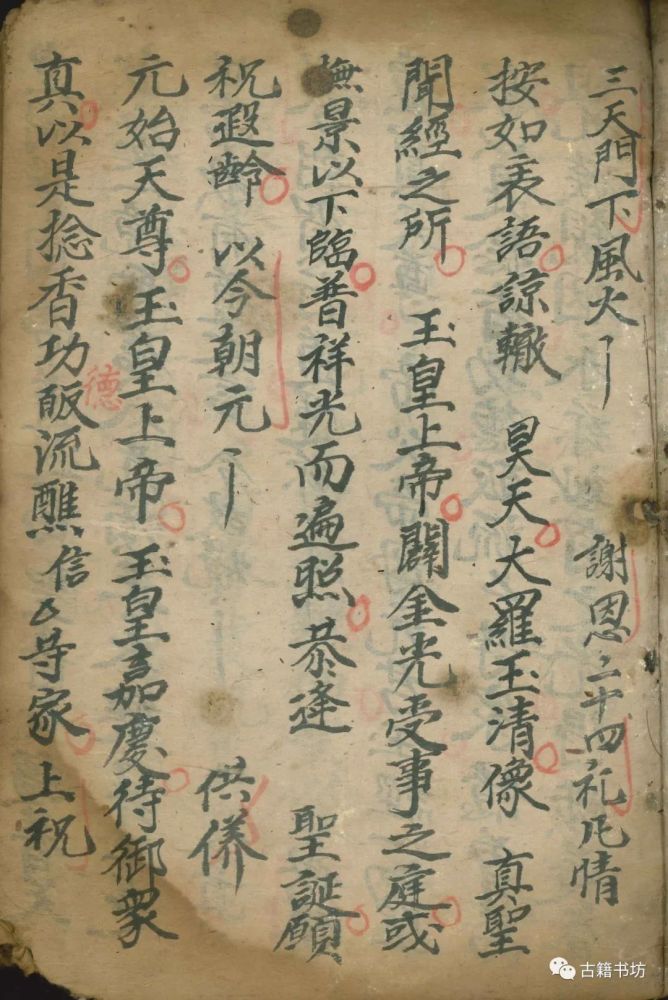 三天門下風火 謝恩二十四礼凡情
按如表語諒轍 昊天大羅玉清像 真聖
聞經之所 玉皇上帝闢金光受事之庭或
撫景以下臨普祥光而遍照恭逢 聖誕願
祝遐齡 以今朝元 供俻
元始天尊玉皇上帝 玉皇嘉慶待御衆
真以是捻香功德皈流醮信等家上祝
古籍书坊